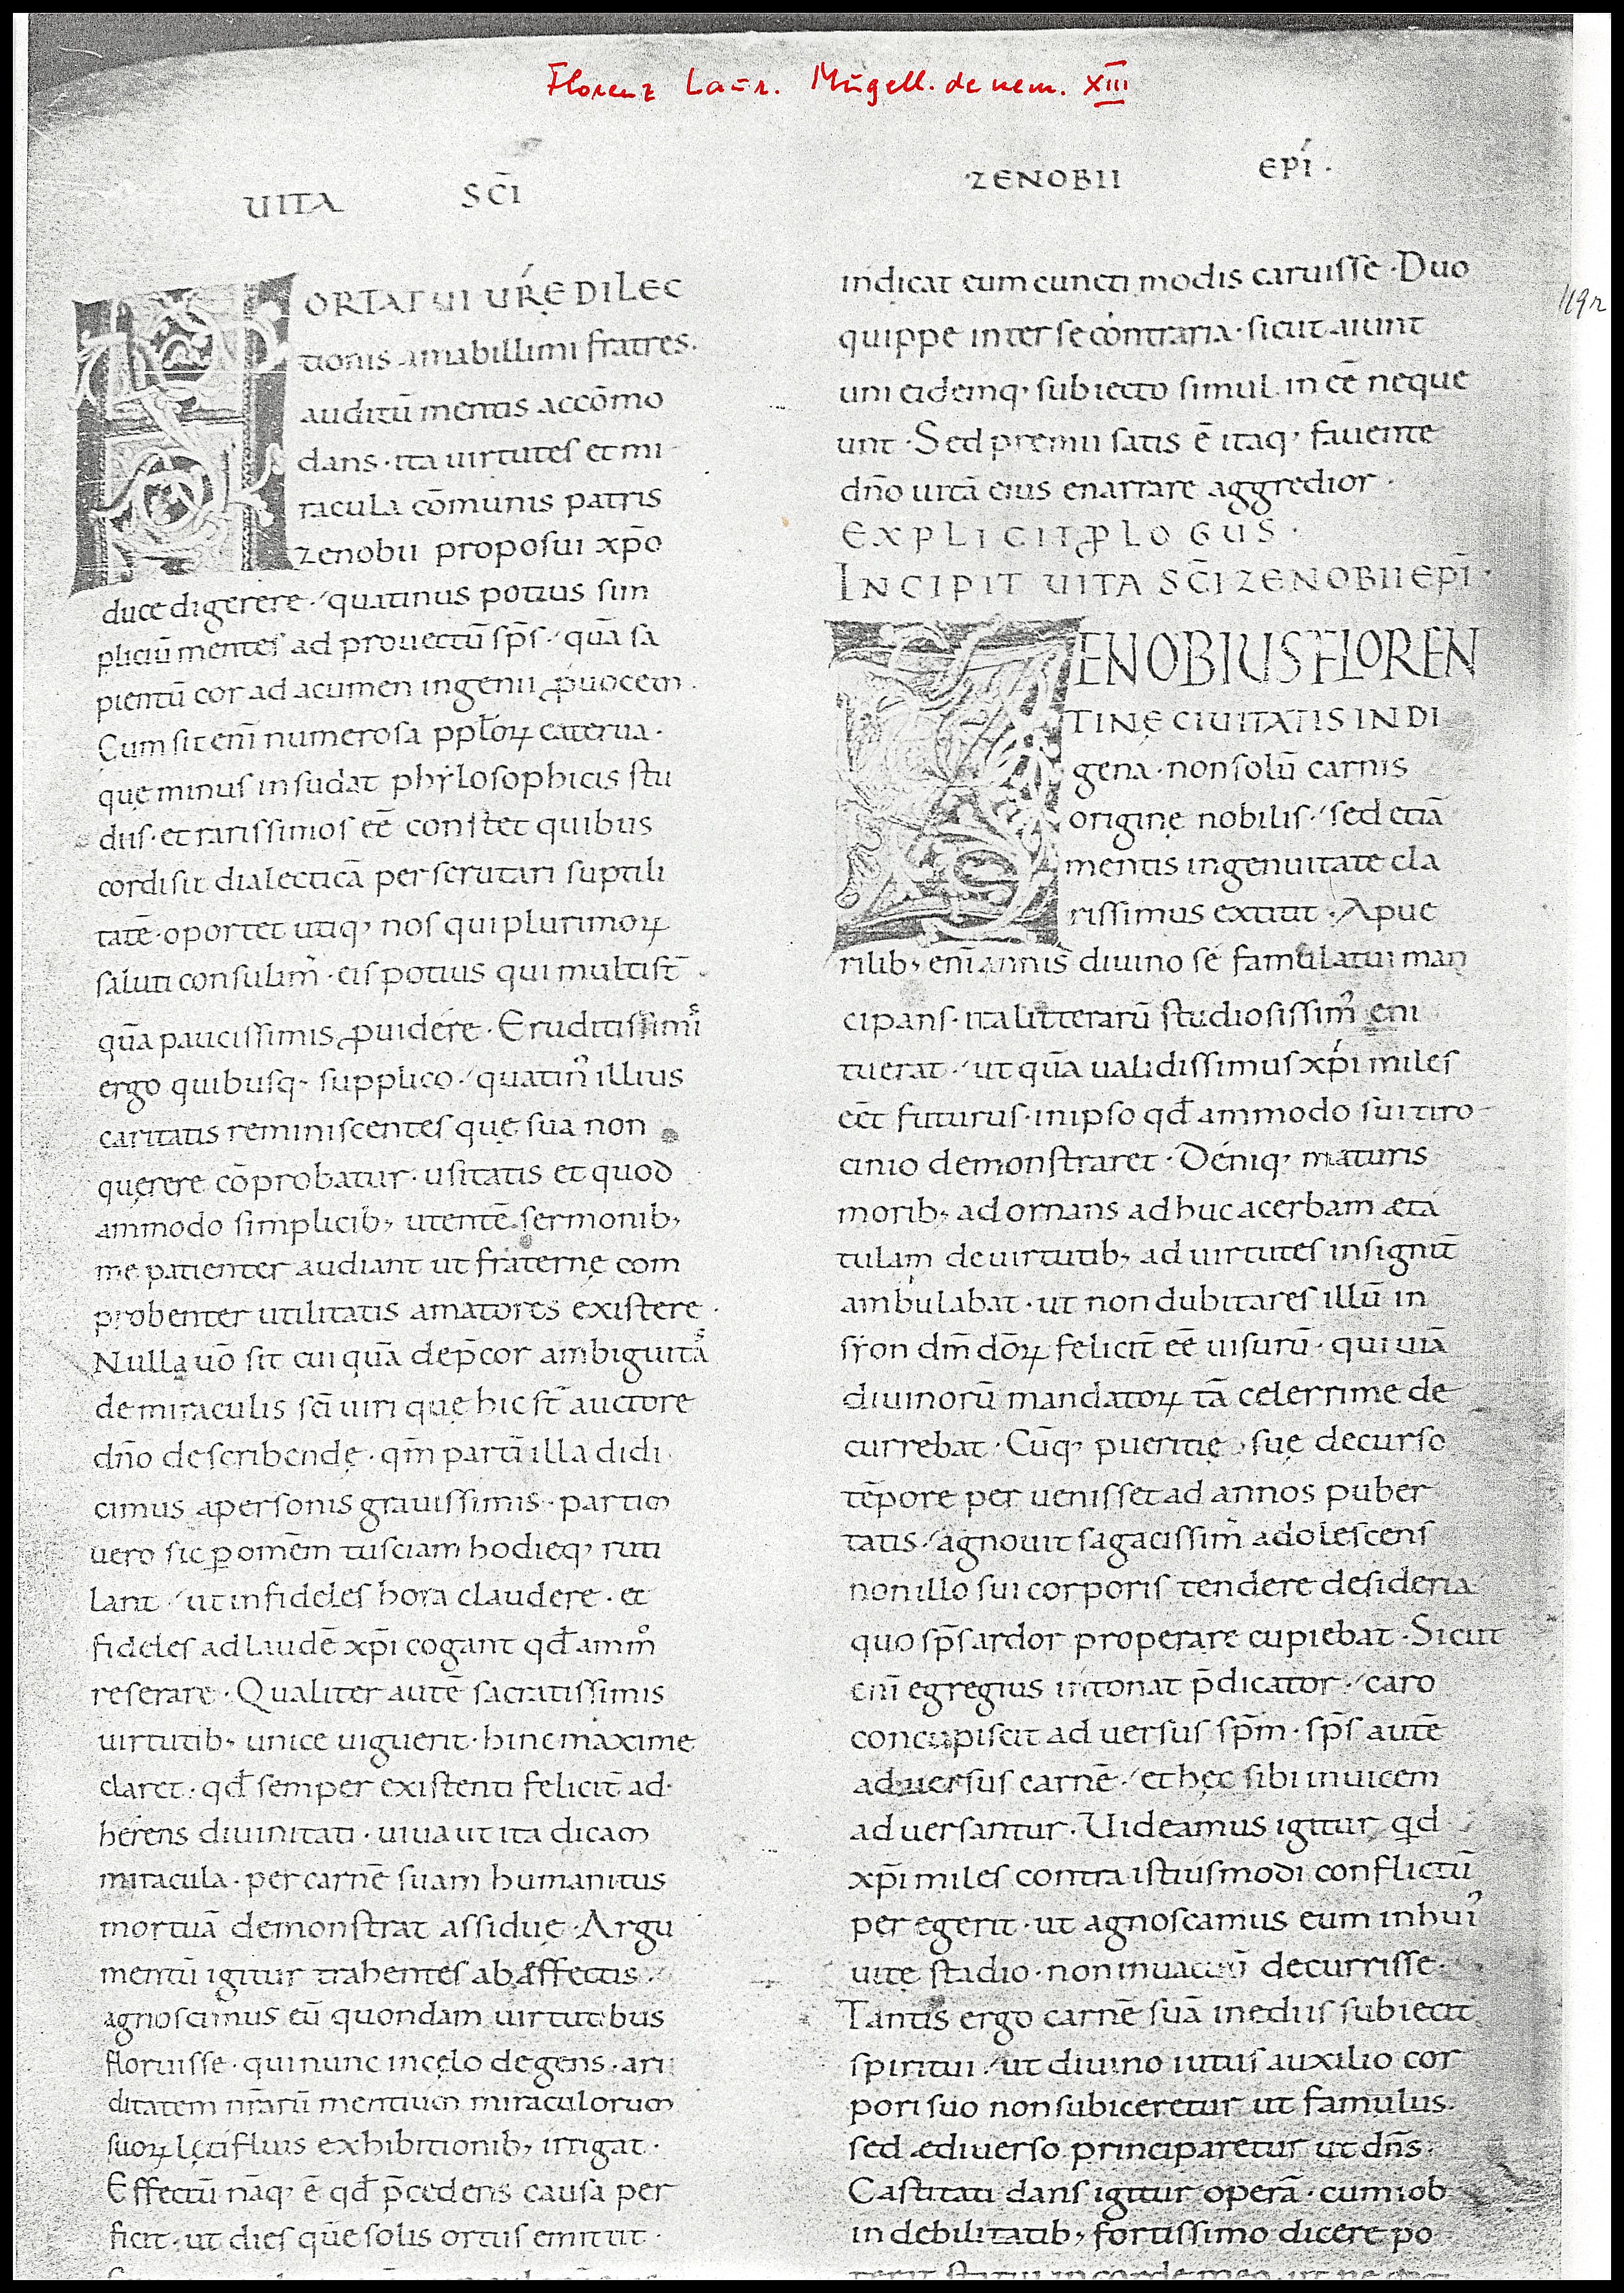 Florenz Laur. Mugell. de nem. XIII
UITA SC̄I
ZENOBII EPĪ ·
119r
HORTATUI UR̄Ę DILEC
tionis amabillimi fratres.
auditū mentis accōmo
dans · ita uirtutes et mi
racula cōmunis patris
zenobii proposui xp̄o
duce digerere · quatinus potius sim
pliciū mentes ad prouectū sp̄s · quā sa
pientū cor ad acumen ingenii ꝓuocem .
Cum sit eni̅ numerosa ppl̄oꝝ caterua ·
quę minus insudat phylosophicis stu
diis · et rarissimos eē constet quibus
cordi sit dialecticā perscrutari suptili
tatē · oportet utiq; nos qui plurimoꝝ
saluti consulim̾ · eis potius qui multi st̄
quā paucissimis ꝓuidere · Eruditissimi
ergo quibusq; supplico · quatin̾ illius
caritatis reminiscentes quę sua non
quęrere cōprobatur · usitatis et quod
ammodo simplicib; utentē sermonib;
me patienter audiant ut fraternę com
probenter utilitatis amatores existere ·
Nulla uō sit cui quā dep̄cor ambiguitaˢ
de miraculis sc̄i uiri quę hic st̄ auctore
dn̄o describendę · qm̄ partī illa didi
cimus a personis grauissimis · partim
uero sic ꝑ omēm tusciam hodieq; ruti
lant · ut infideles hora claudere · et
fideles ad laudē xp̄i cogant qđ amm̊
reserare · Qualiter autē sacratissimis
uirtutib; unice uiguerit · hinc maxime
claret · qđ semper existenti felicit̄ ad
herens diuinitati · uiua ut ita dicam
miracula · per carnē suam humanitus
mortuā demonstrat assidue · Argu
mentū igitur trahentes ab affectis ·
agnoscimus eū quondam uirtutibus
floruisse · qui nunc in cęlo degens · ari
ditatem nr̄arū mentium miraculorum
suoꝝ lętifluis exhibitionib; irrigat ·
Effectū nāq; ē qđ p̄cedens causa per
ficit · ut dies quē solis ortus emittit ·
indicat eum cuncti modis caruisse · Duo
quippe inter se contraria · sicut aiunt
uni eidemq; subiecto simul in eē neque
unt · Sed premii satis ē itaq; fauente
dn̄o uitā eius enarrare aggredior ·
EXPLICIT ꝒLOGUS ·
INCIPIT UITA SC̄I ZENOBII EPĪ ·
ZENOBIUS FLOREN
TINĘ CIUITATIS INDI
gena · non solū carnis
originę nobilis · sed etiā
mentis ingenuitate cla
rissimus extitit · A pue
rilib; eni̅ annis diuino se famulatui man
cipans · ita litterarū studiosissim̾ eni
tuerat · ut quā ualidissimus xp̄i miles
eēt futurus · in ipso qđ ammodo sui tiro
cinio demonstraret · Deniq; maturis
morib; adornans adhuc acerbam æta
tulam de uirtutib; ad uirtutes insignit̄
ambulabat · ut non dubitares illū in
syon dm̄ dōꝝ felicit̄ eē uisurū · qui uiā
diuinorū mandatoꝝ tā celerrime de
currebat · Cūq; pueritię suę decurso
tēpore peruenisset ad annos puber
tatis · agnouit sagacissim̾ adolescens
non illo sui corporis tendere desideria
quo sp̄s ardor properare cupiebat · Sicut
eni̅ egregius intonat p̄dicator · caro
concupiscit aduersus sp̄m · sp̄s autē
aduersus carnē · et hęc sibi inuicem
aduersantur. Uideamus igitur qd
xp̄i miles contra istiusmodi conflictū
peregerit · ut agnoscamus eum in hui̾
uitę stadio · non in uacuū decurrisse ·
Tantis ergo carnē suā inediis subiecit
spiritui · ut diuino iutus auxilio cor
pori suo non subiceretur ut famulus.
sed ædiuerso principaretur ut dn̄s.
Castitati dans igitur operā · cum iob
in debilitatib; fortissimo dicere po